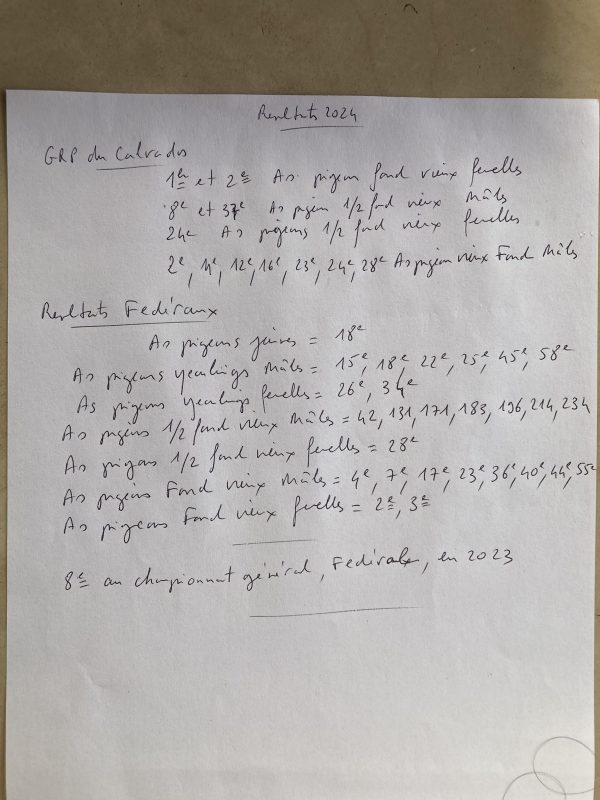 Resultats 2024
GRP du Calvados
1er et 2e As pigeon fond vieux femelles
8e et 37e As pigeon 1/2 fond vieux Mâles
24e As pigeons 1/2 fond vieux femelles
2e, 4e, 12e, 16e, 23e, 24e, 28e As pigeon vieux Fond Mâles
Resultats Fedéraux
As pigeons jeunes = 18e
As pigeons yearlings Mâles = 15e, 18e, 22e, 25e, 45e, 58e
As pigeons yearlings femelles = 26e, 34e
As pigeons 1/2 fond vieux Mâles = 42, 131, 171, 183, 196, 214, 234
As pigeons 1/2 fond vieux femelles = 28e
As pigeons Fond vieux Mâles = 4e, 7e, 17e, 23e, 36e, 40e, 44e, 55e
As pigeons Fond vieux femelles = 2e, 3e
8e au championnat général, Fedérale, en 2023